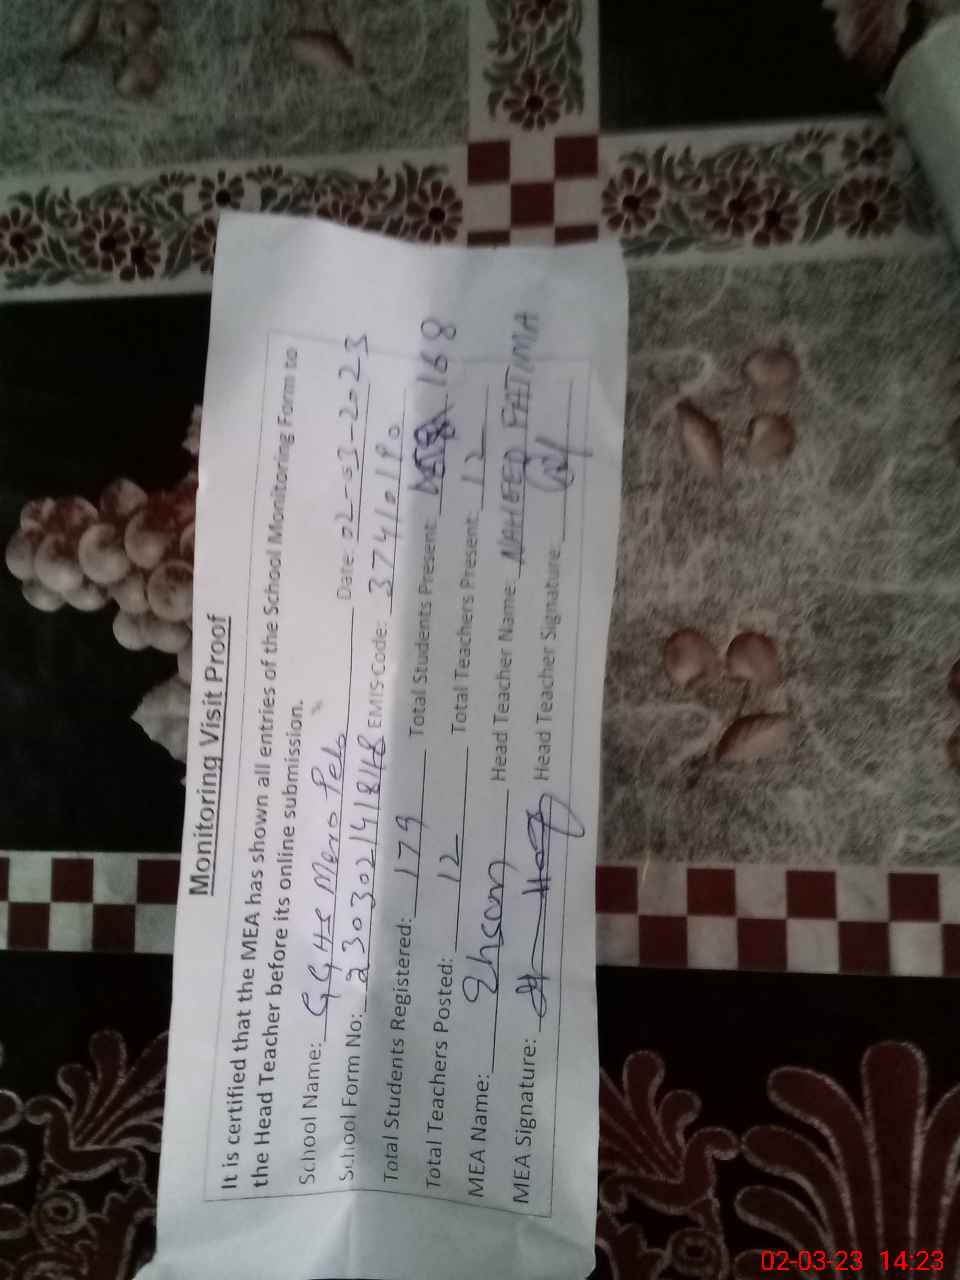 Monitoring Visit Proof
It is certified that the MEA has shown all entries of the School Monitoring Form to
the Head Teacher before its online submission.
School Name: GGHS Mera Pelo Date: 02-03-2023
School Form No: 230302141848 EMIS Code: 37410190
Total Students Registered: 179 Total Students Present: 168
Total Teachers Posted: 12 Total Teachers Present: 12
MEA Name: Ehsan Head Teacher Name: NAHEED FATIMA
MEA Signature: Head Teacher Signature:
02-03-23 14:23